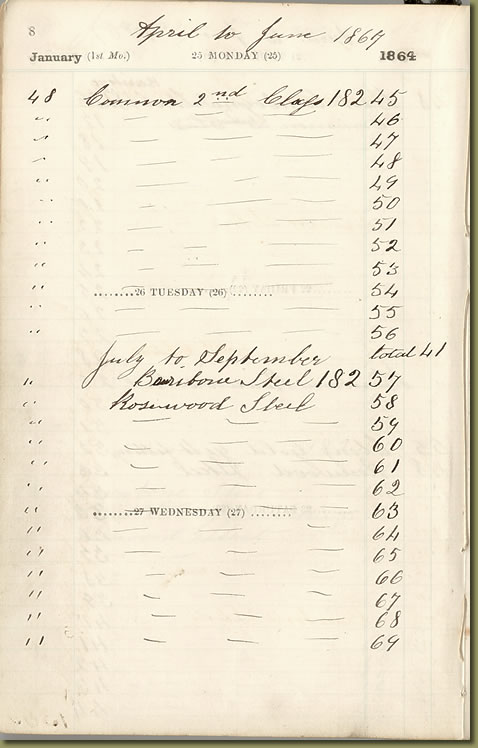 8 April to June 1867
January (1st Mo.) 25 MONDAY (25) 1864
48 Common 2nd Class 182 45
" — — — 46
" — — — 47
" — — — 48
" — — — 49
" — — — 50
" — — — 51
" — — — 52
" — — — 53
" ........26 TUESDAY (26) ........ 54
" — — — 55
" — — — 56
July to September total 41
" Steel 182 57
" Rosewood Steel 58
" — — — 59
" — — — 60
" — — — 61
" — — — 62
" ........27 WEDNESDAY (27) ........ 63
" — — — 64
" — — — 65
" — — — 66
" — — — 67
" — — — 68
" — — — 69